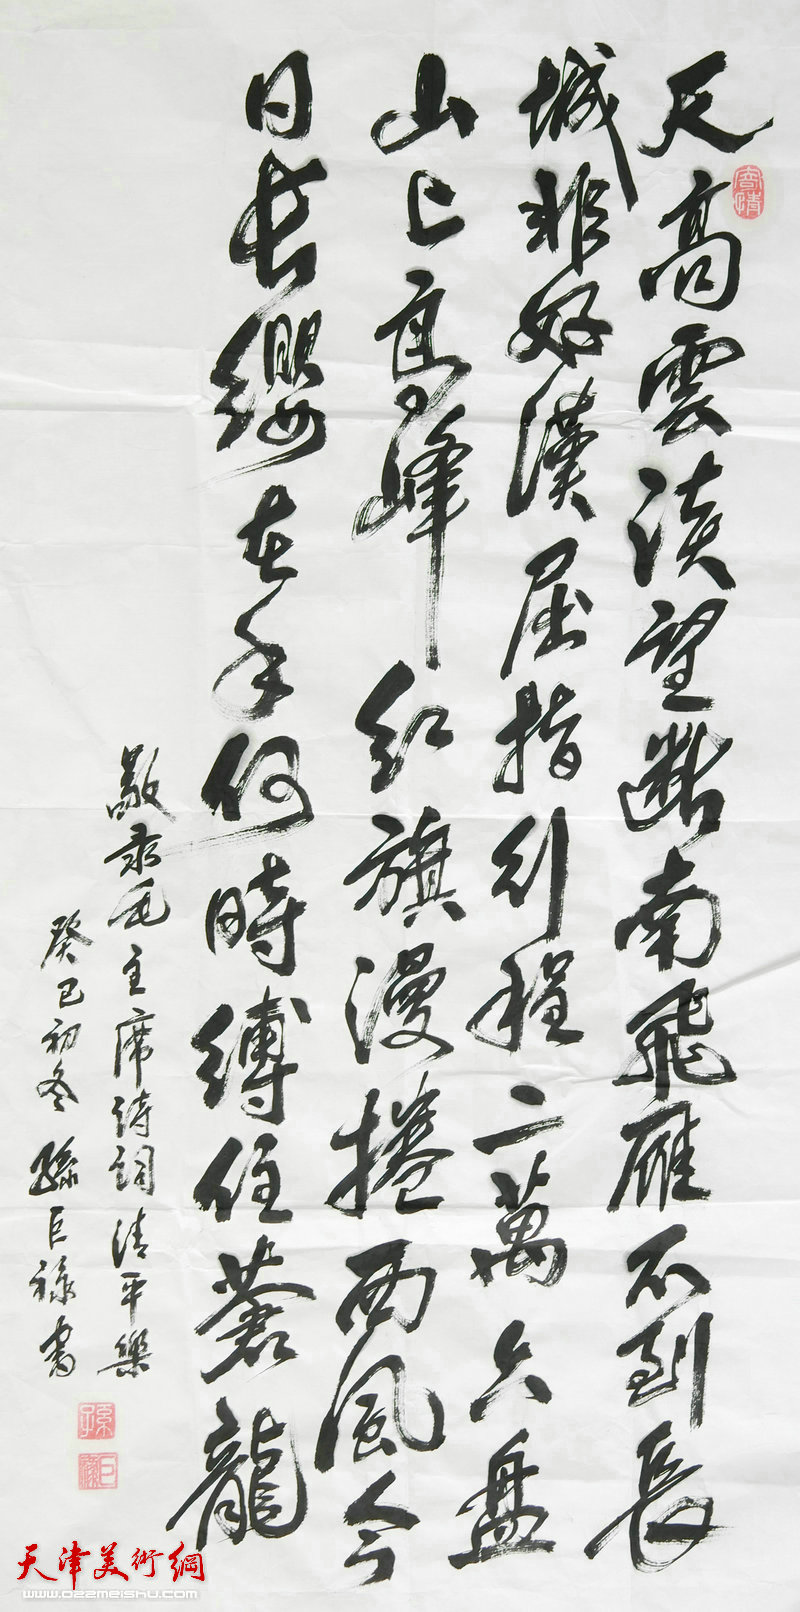 天高雲淡望斷南飛雁不到長
城非好漢屈指行程二萬六盤
山上高峰紅旗漫捲西風今
日長纓在手何時縛住蒼龍
敬录毛主席詩詞清平樂
癸巳初冬孫巨禄書
孫
巨禄
天津美術網
www.022meishu.com